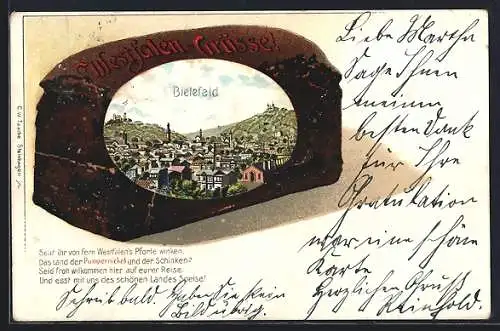 Westfalen-Grüsse!
Bielefeld
Seht ihr von fern Westfalen's Pforte winken,
Das Land der Pumpernickel und der Schinken?
Seid froh willkommen hier auf eurer Reise
Und esst mit uns des schönen Landes Speise!
Liebe Martha
Sage Ihnen
meinen
besten Dank
für Ihre
Gratulation
war eine schöne
Karte
Herzlichen Gruß
Reinhold.
Schreibt bald. Haben Sie kein
Bild übrig.